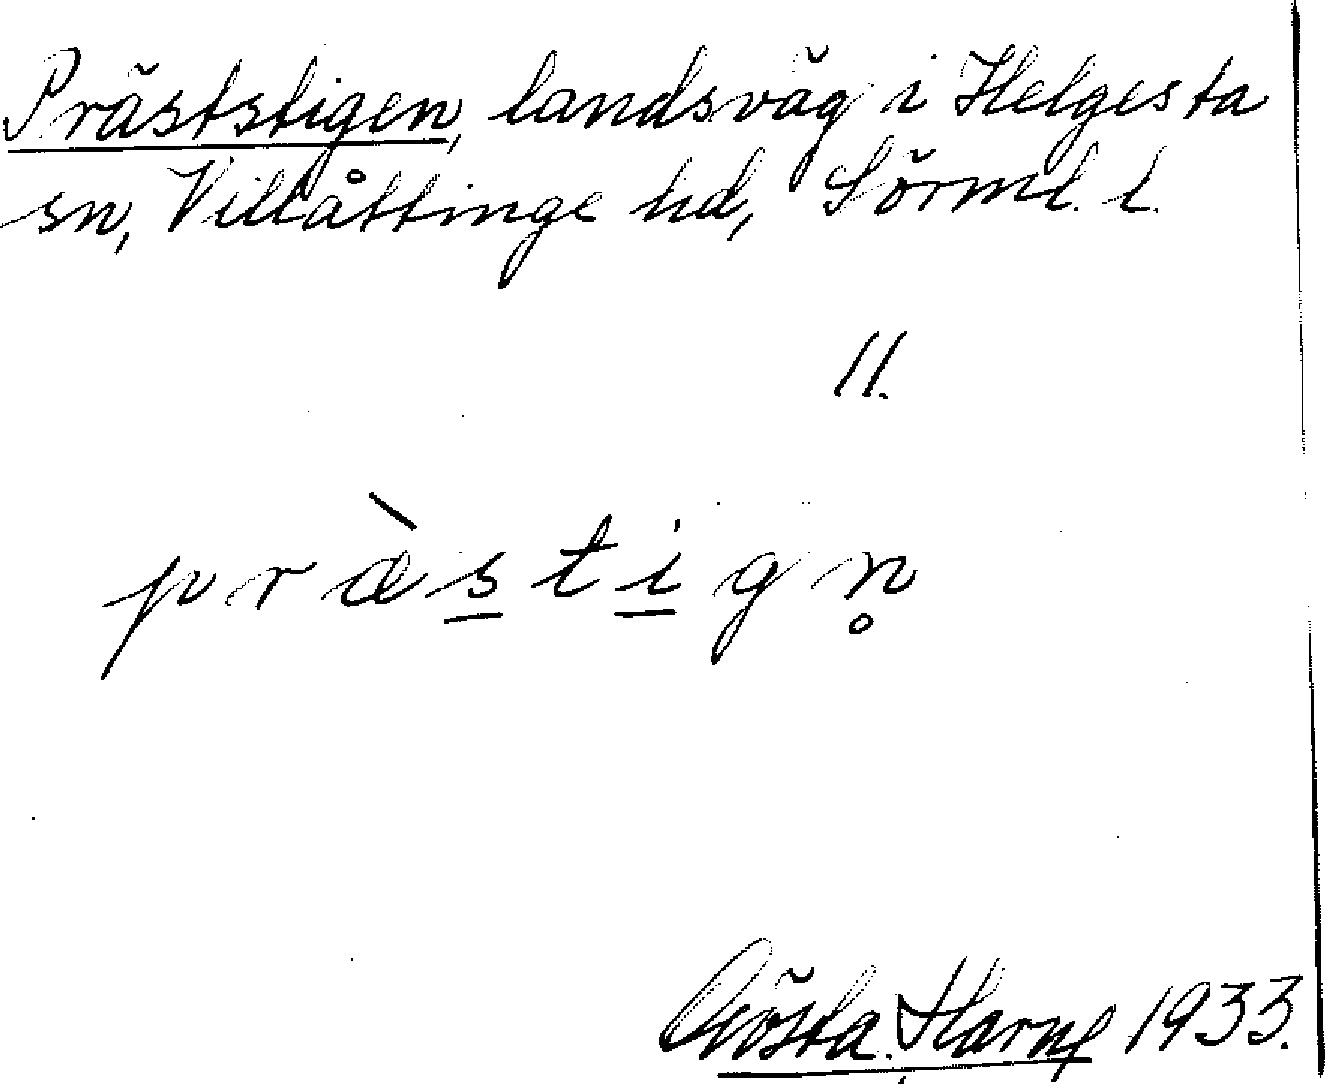 Präststigen, landsväg i Helgesta
sn, Villåttinge hd, Sörml. l.
11.
præ̀s̲ti̲gn̥
Gösta Harne 1933.